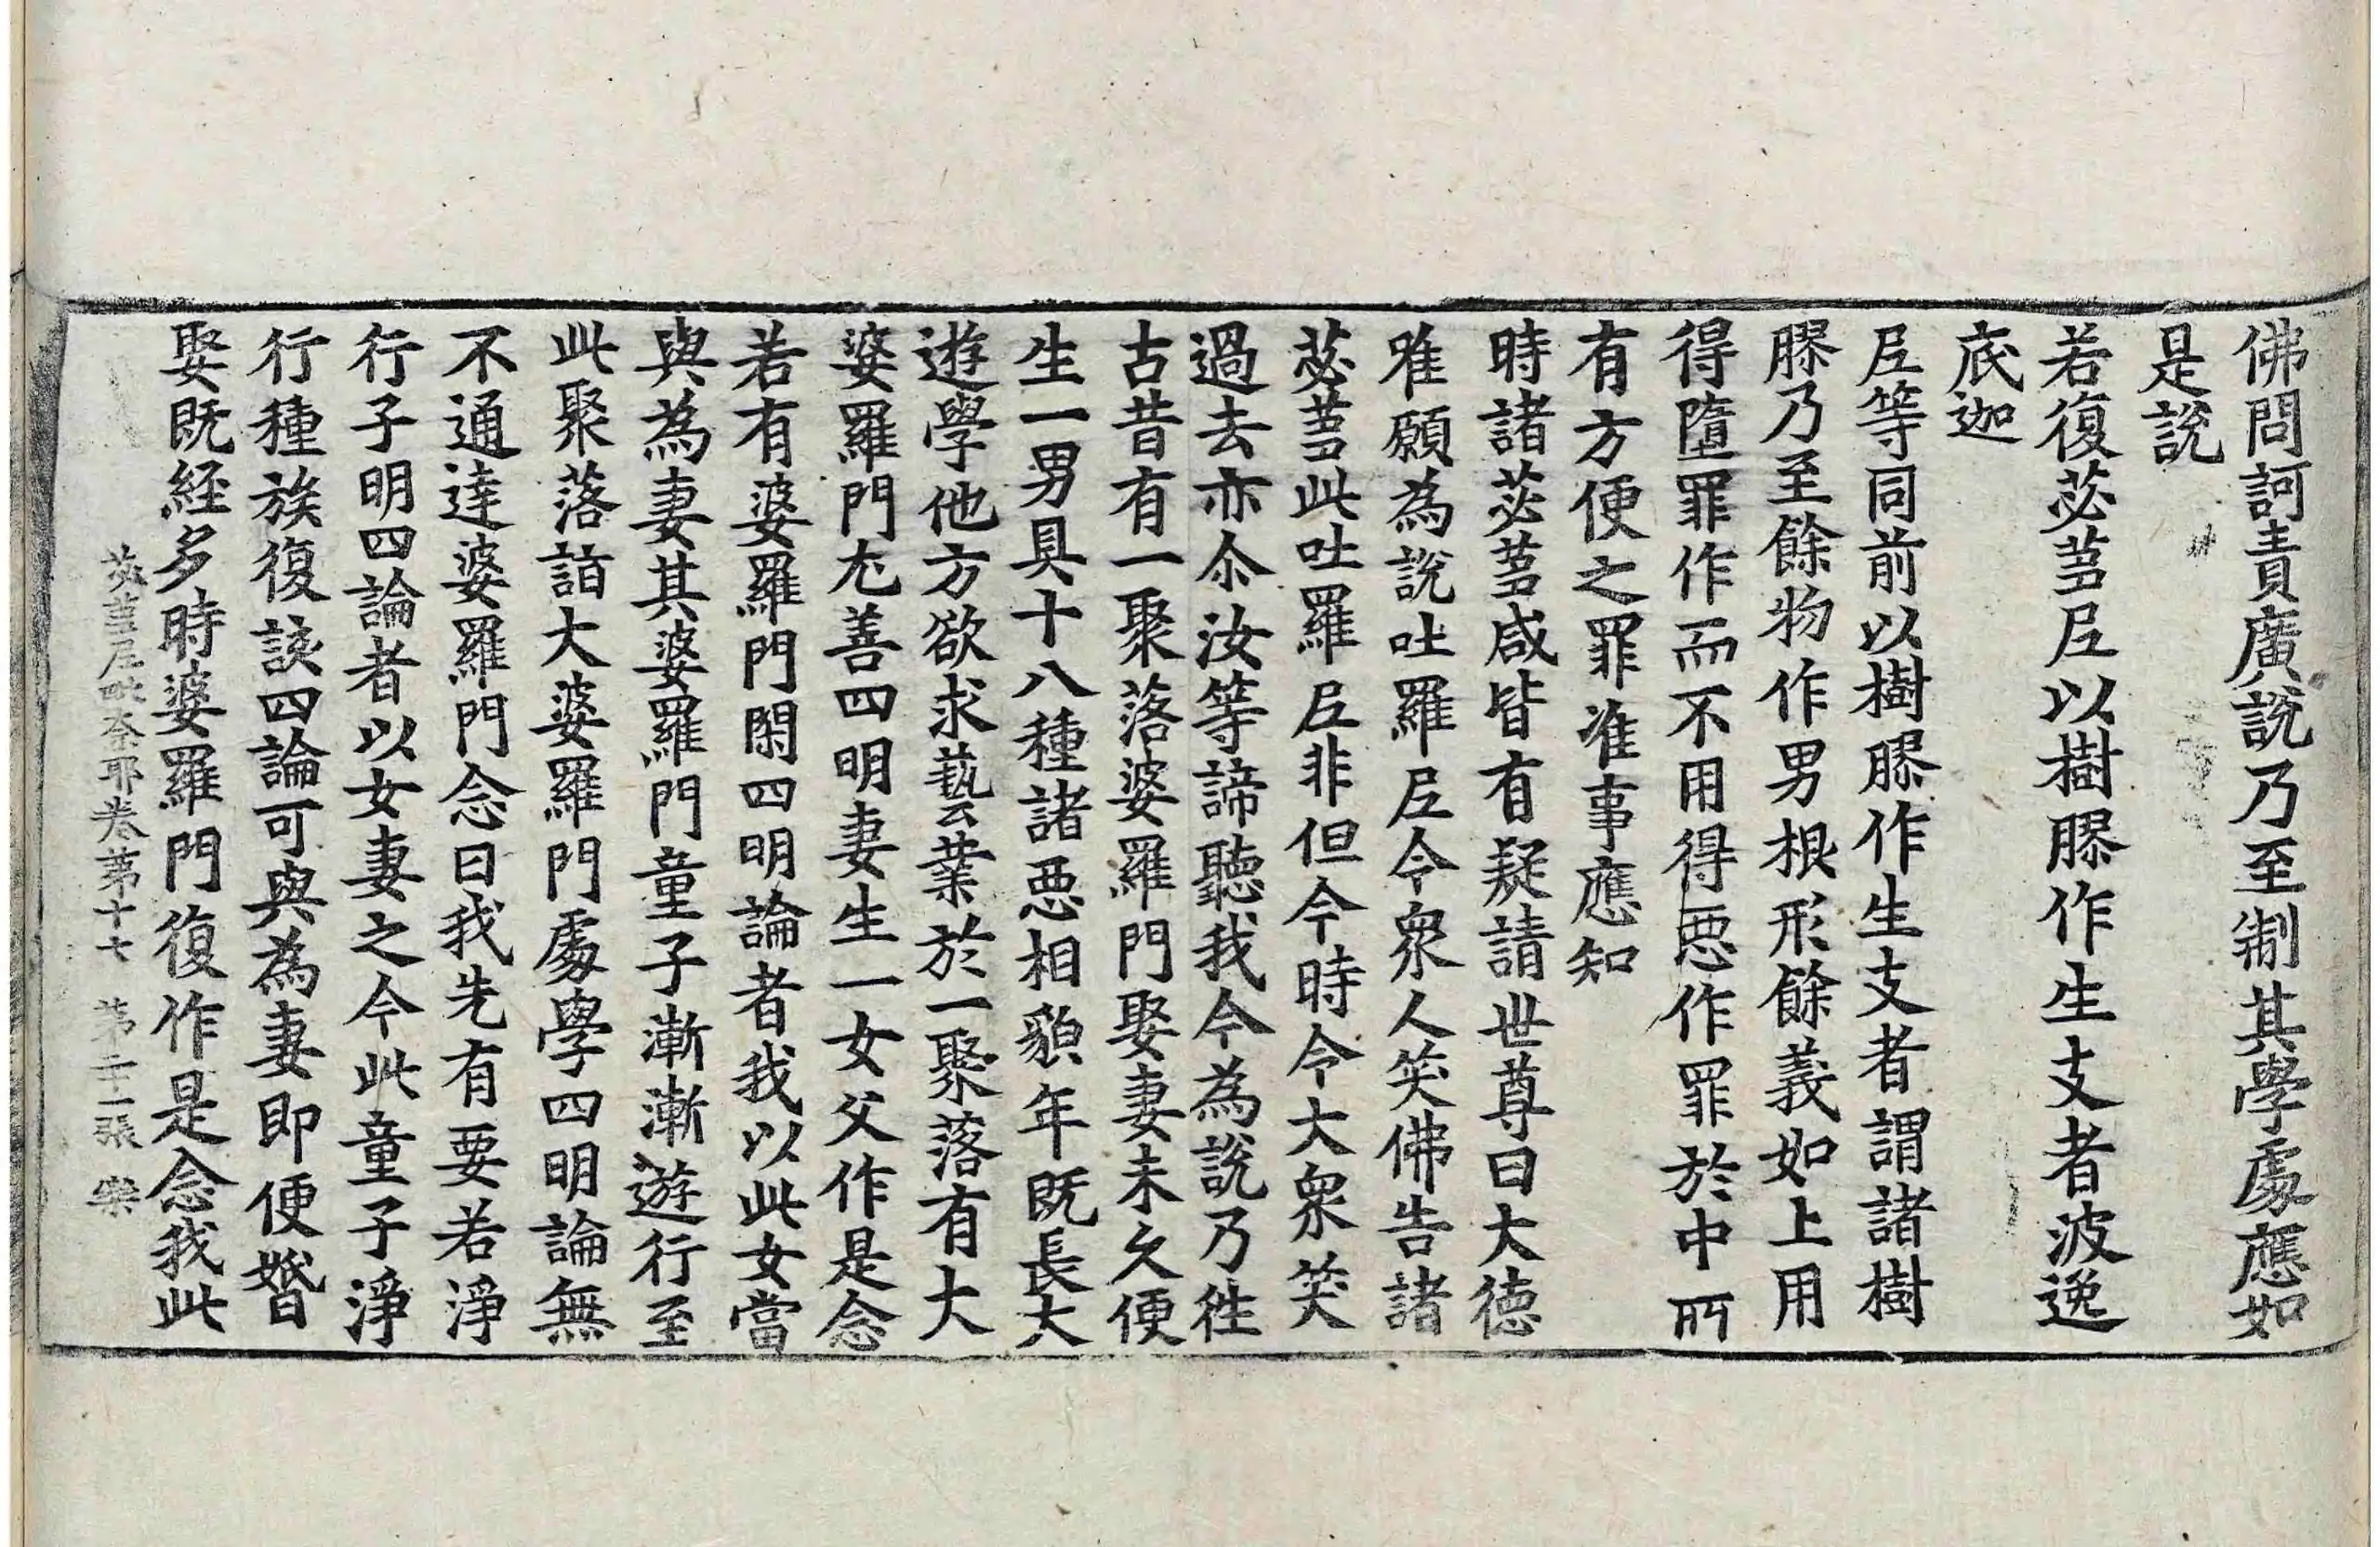 佛問訶責廣說乃至制其學處應如
是說
若復苾芻尼以樹膠作生支者波逸
底迦
尼等同前以樹膠作生支者謂諸樹
膠乃至餘物作男根形餘義如上用
得墮罪作而不用得惡作罪於中所
有方便之罪准事應知
時諸苾芻咸皆有疑請世尊曰大徳
唯願為說吐羅尼令衆人笑佛告諸
苾芻此吐羅尼非但今時令大衆笑
過去亦尒汝等諦聽我今為說乃往
古昔有一聚落婆羅門娶妻未久便
生一男具十八種諸惡相貌年既長大
遊學他方欲求藝業於一聚落有大
婆羅門尤善四明妻生一女父作是念
若有婆羅門閑四明論者我以此女當
與為妻其婆羅門童子漸漸遊行至
此聚落詣大婆羅門處學四明論無
不通達婆羅門念曰我先有要若淨
行子明四論者以女妻之今此童子淨
行種族復該四論可與為妻即便婚
娶既経多時婆羅門復作是念我此
苾芻尼毗奈耶卷第十七 第二十一張 樂